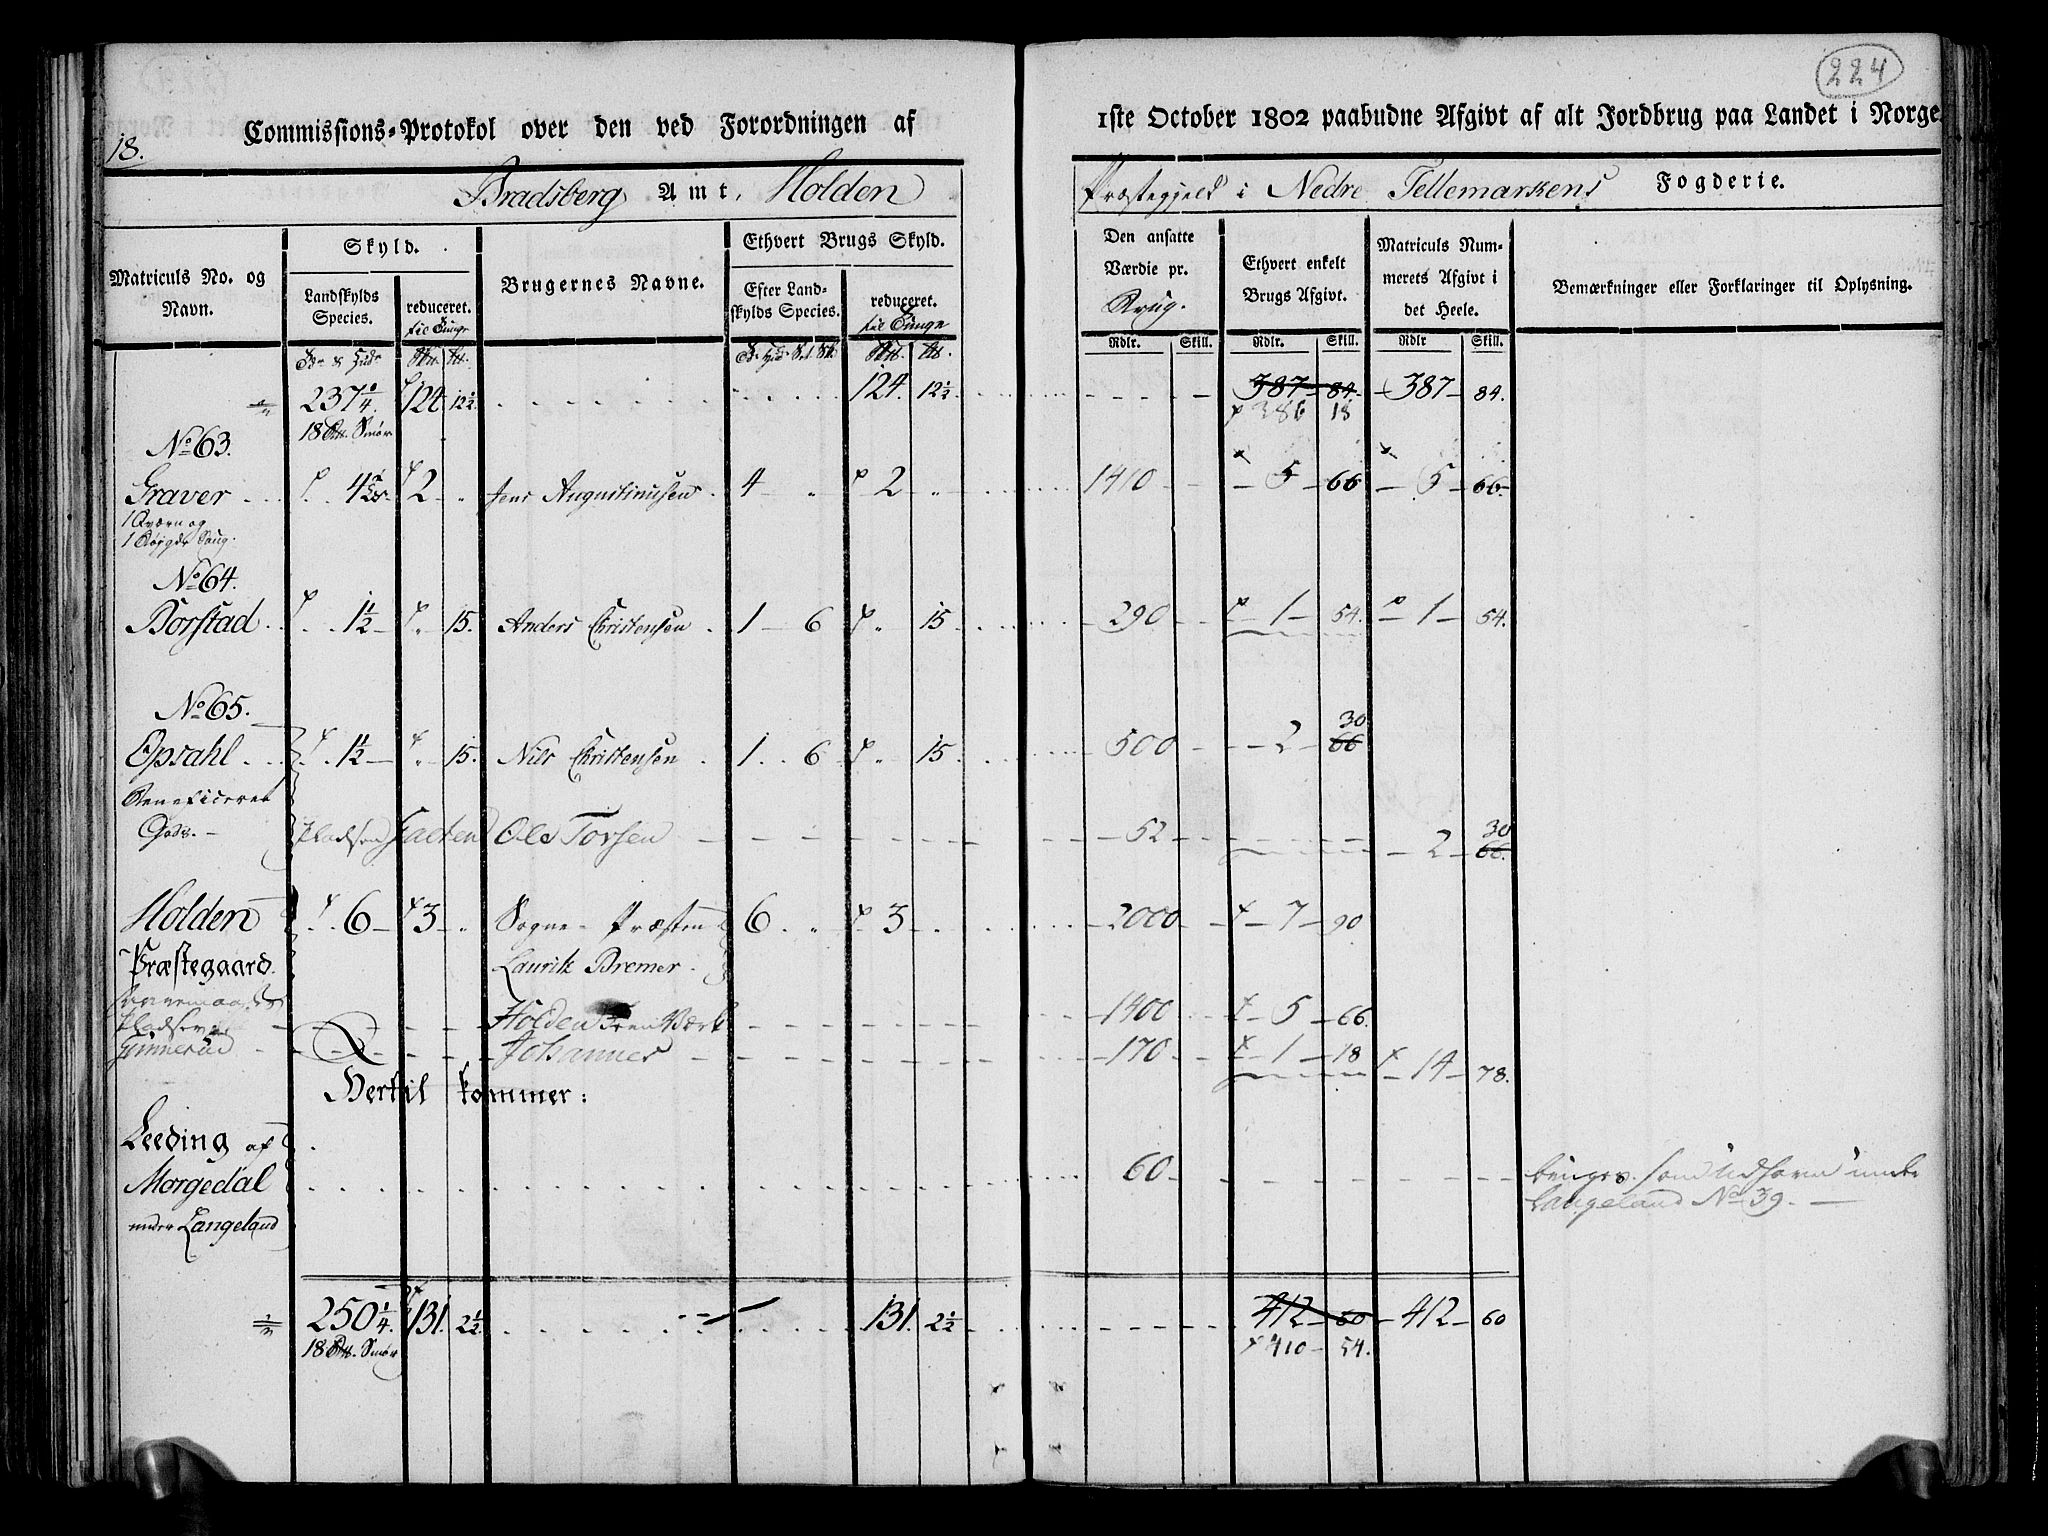 224
18.
Commissions-Protokol over den ved Forordningen af 1ste October 1802 paabudne Afgivt af alt Jordbrug paa Landet i Norge.
Bradsberg Amt, Holden Præstegjeld i Nedre Tellemarkens Fogderie.
Matriculs No. og Navn.
Skyld.
Landskylds Species.
reduceret. til Tunge
Brugernes Navne.
Ethvert Brugs Skyld.
Efter Landskylds Species.
reduceret. til Tunge
Den ansatte Værdie pr. Brug.
Ethvert enkelt Brugs Afgivt.
Matriculs Nummerets Afgivt i det Heele.
Bemærkninger eller Forklaringer til Oplysning.
Rdlr. Skill. Rdlr. Skill. Rdlr Skill.
237 1/4. 124 12 1/2. 124. 12 1/2 387 84. 387 84.
18 Smør 386 18
No 63.
Graver 4 2 Jens Augustinusen 4 2 1410 5 66 5 66
1 Qværn og
1 Saug.
No 64.
Borstad 1 1/2 15. Anders Christensen 1 6 15 290 1 54. 1 54.
No 65.
30
Opsahl 1 1/2 15. Nils Christensen 1 6 15 500 2 66
Beneficeret
Gods. Pladsen Ole Torsen 52 2 30
66.
Holden 6 3 Sogne-Præsten 6 3 2000 7 90
Præstegaard. Laurits Bremer.
Pladser Holden Jern Værk 1400 5 66.
Gunnerud Johannes 170 1 18 14 78.
Hertil kommer:
Leeding af
Morgedal 60 bruges som under
under Langeland Langeland No 39.
250 1/4. 131. 2 1/2. 131. 2 1/2 412 60 412 60
18 Smør 410 54.